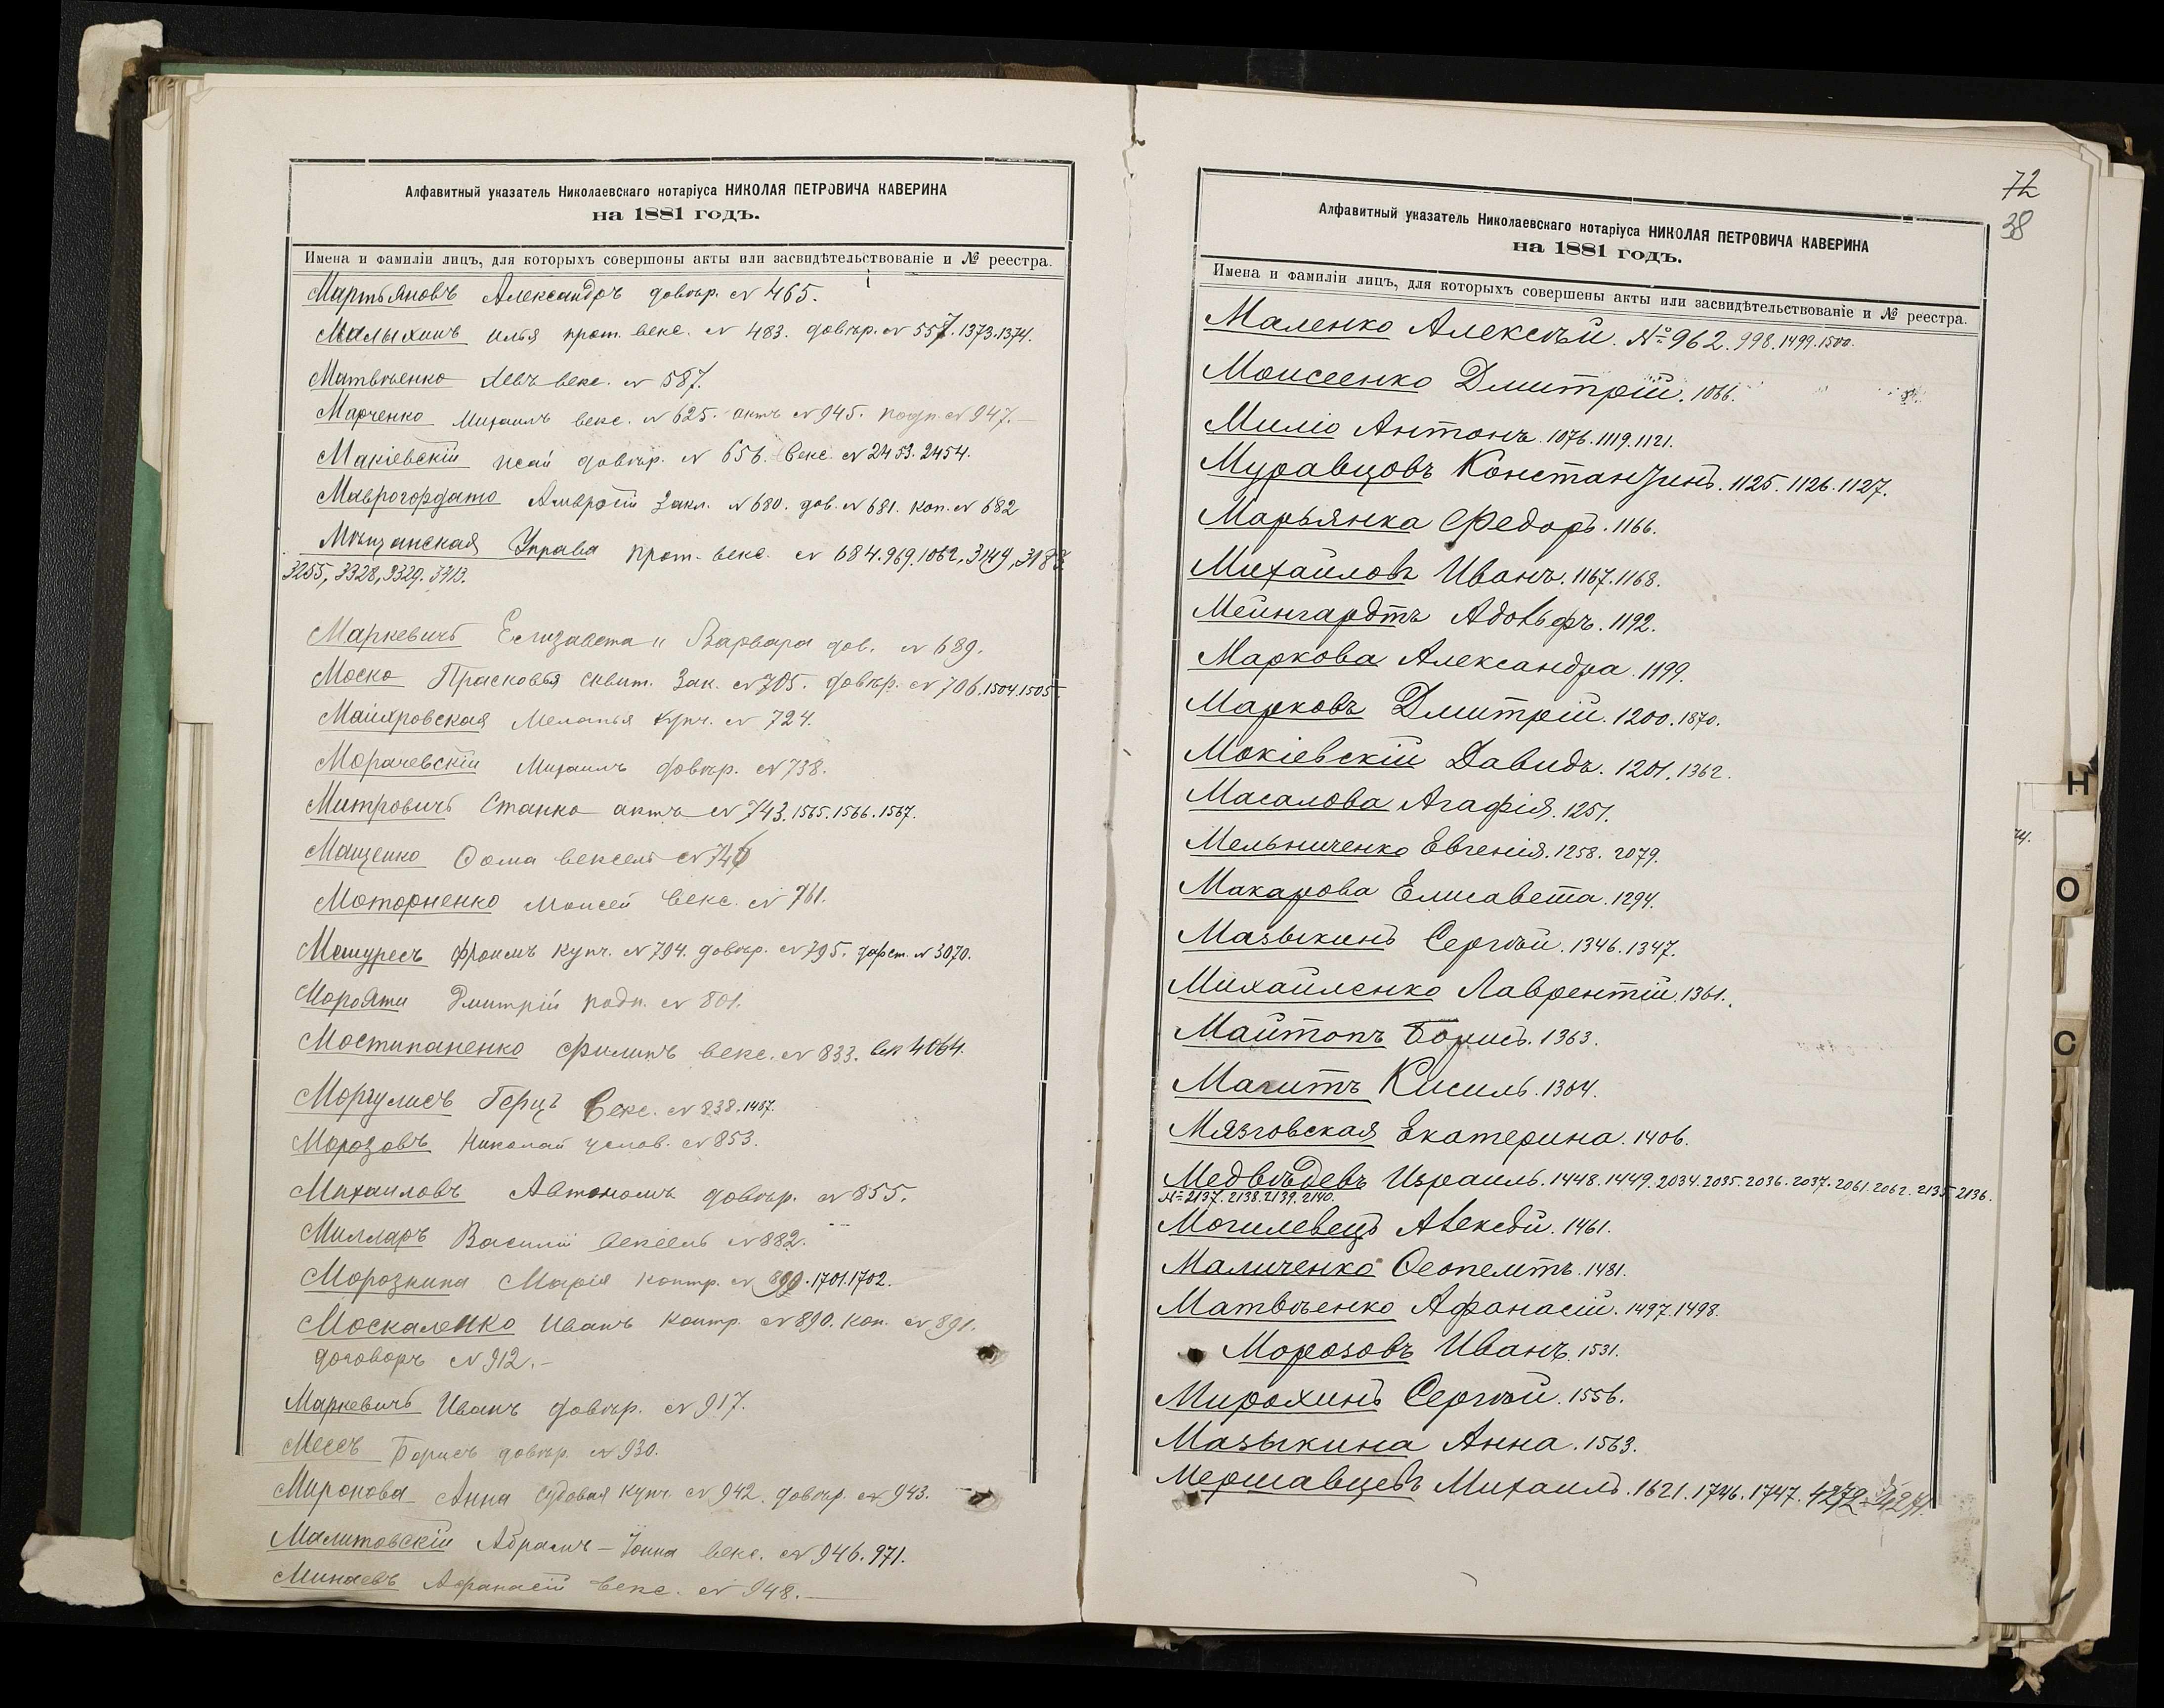 Алфавитный указатель Николаевскаго нотаріуса НИКОЛАЯ ПЕТРОВИЧА КАВЕРИНА
на 1881 годъ.
Имена и фамиліи лицъ, для которыхъ совершоны акты или засвидѣтельствованіе и № реестра.
Мартьяновъ Александръ довѣр. № 465.
Малыхинъ Илья прот. векс. № 483. довѣр. № 557. 1373. 1374.
Матвѣенко Левъ векс. № 587.
Марченко Михаилъ векс. № 625. актъ № 945. подп. № 947.
Макіевскій Исай довѣр. № 656. Векс. № 2453. 2454.
Маврогордато Амвросій Закл. № 680. дов. № 681. коп. № 682
Мѣщанская Управа прот. векс. № 684. 969. 1062, 3149,
3255, 3328, 3329.
Маркевичъ Елизавета и Варвара дов. № 689.
Моско Прасковья Зак. № 705. довѣр. № 706. 1504. 1505.
Маляровская Меланья купч. № 724.
Морачевскій Михаилъ довѣр. № 738.
Митровичъ Станко актъ № 743. 1565. 1566. 1567.
Мащенко Ѳома вексель №
Моторненко Моисей векс. № 761.
Фроимъ купч. № 794. довѣр. № 795. № 3070.
Дмитрій подп. № 801.
Мостипаненко Филипъ векс. № 833. век 4064.
Моргулисъ Герцъ Векс. № 838. 1487.
Морозовъ Николай услов. № 853.
Михаиловъ Автономъ довѣр. № 855.
Милларъ Василій вексель № 882.
Морозкина Марія контр. № 890. 1701. 1702.
Москаленко Иванъ контр. № 890. коп. № 891.
договоръ № 912.-
Маркевичъ Иванъ довѣр. № 917.
Мессъ Борисъ довѣр. № 930.
Миронова Анна купч. № 942. довѣр. № 943.
Малитовскій Абрамъ - векс. № 946. 971.
Минаевъ Афанасій векс. № 948.
72
38
Алфавитный указатель Николаевскаго нотаріуса НИКОЛАЯ ПЕТРОВИЧА КАВЕРИНА
на 1881 годъ.
Имена и фамиліи лицъ, для которыхъ совершены акты или засвидѣтельствованіе и № реестра.
Маленко Алексѣй. № 962. 998. 1499. 1500.
Моисеенко Дмитрій. 1066.
Миліо Антонъ. 1076. 1119. 1121.
Муравцовъ Константинъ. 1125. 1126. 1127.
Марьянка Федоръ. 1166.
Михайловъ Иванъ. 1167. 1168.
Мейнгардтъ Адольфъ. 1192.
Маркова Александра. 1199.
Марковъ Дмитрій. 1200. 1870.
Мокіевскій Давидъ. 1201. 1362.
Масалова Агафія. 1251.
Мельниченко Евгенія. 1258. 2079.
Макарова Елисавета. 1294.
Мазыкинъ Сергѣй. 1346. 1347.
Михайленко Лаврентій. 1361.
Майтопъ Борисъ. 1363.
Магитъ Кисиль. 1304.
Мязговская Екатерина. 1406.
Медвѣдевъ Израиль. 1448. 1449. 2034. 2035. 2036. 2037. 2061. 2062. 2135. 2136.
№ 2137. 2138. 2139. 2140.
Могилевецъ Алексѣй. 1461.
Маличенко Ѳеопемтъ. 1481.
Матвѣенко Афанасій. 1497. 1498.
Морозовъ Иванъ. 1531.
Мирохинъ Сергѣй. 1556.
Мазыкина Анна. 1563.
Мершавцевъ Михаилъ. 1621. 1746. 1747. 4272.
Н
О
С